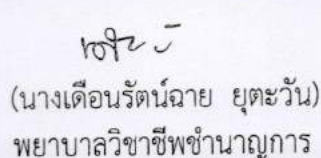 (นางเดือนรัตน์ฉาย ยุตะวัน)
พยาบาลวิชาชีพชำนาญการ